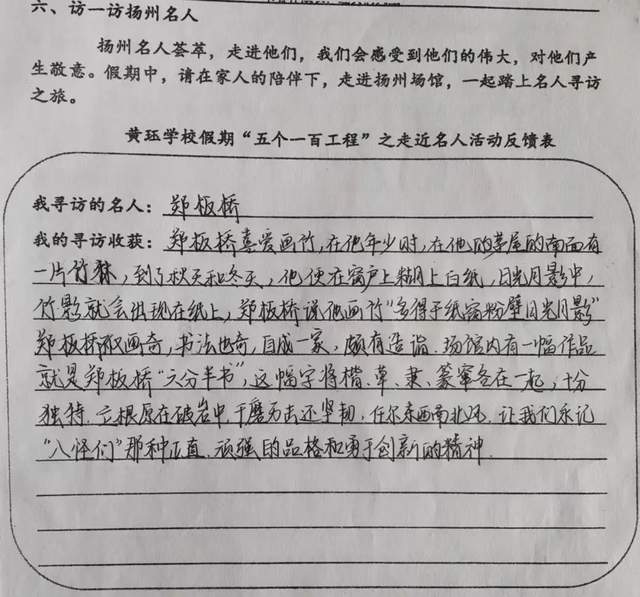 六、访一访扬州名人
扬州名人荟萃，走进他们，我们会感受到他们的伟大，对他们产
生敬意。假期中，请在家人的陪伴下，走进扬州场馆，一起踏上名人寻访
之旅。
黄珏学校假期“五个一百工程”之走近名人活动反馈表
我寻访的名人：郑板桥
我的寻访收获：郑板桥喜爱画竹，在他年少时，在他的茅屋的南面有
一片竹林，到了秋天和冬天，他便在窗户上糊上白纸，日光月影中，
竹影就会出现在纸上，郑板桥说他画竹“多得于纸窗粉壁日光月影”
郑板桥不仅画奇，书法也奇，自成一家，颇有造诣．场馆内有一幅作品
就是郑板桥“六分半书”，这幅字将楷、草、隶、篆窜各在一起，十分
独特．立根原在破岩中，千磨万击还坚韧．任尔东西南北风．让我们永记
“八怪们”那种正直．顽强的品格和勇于创新的精神．